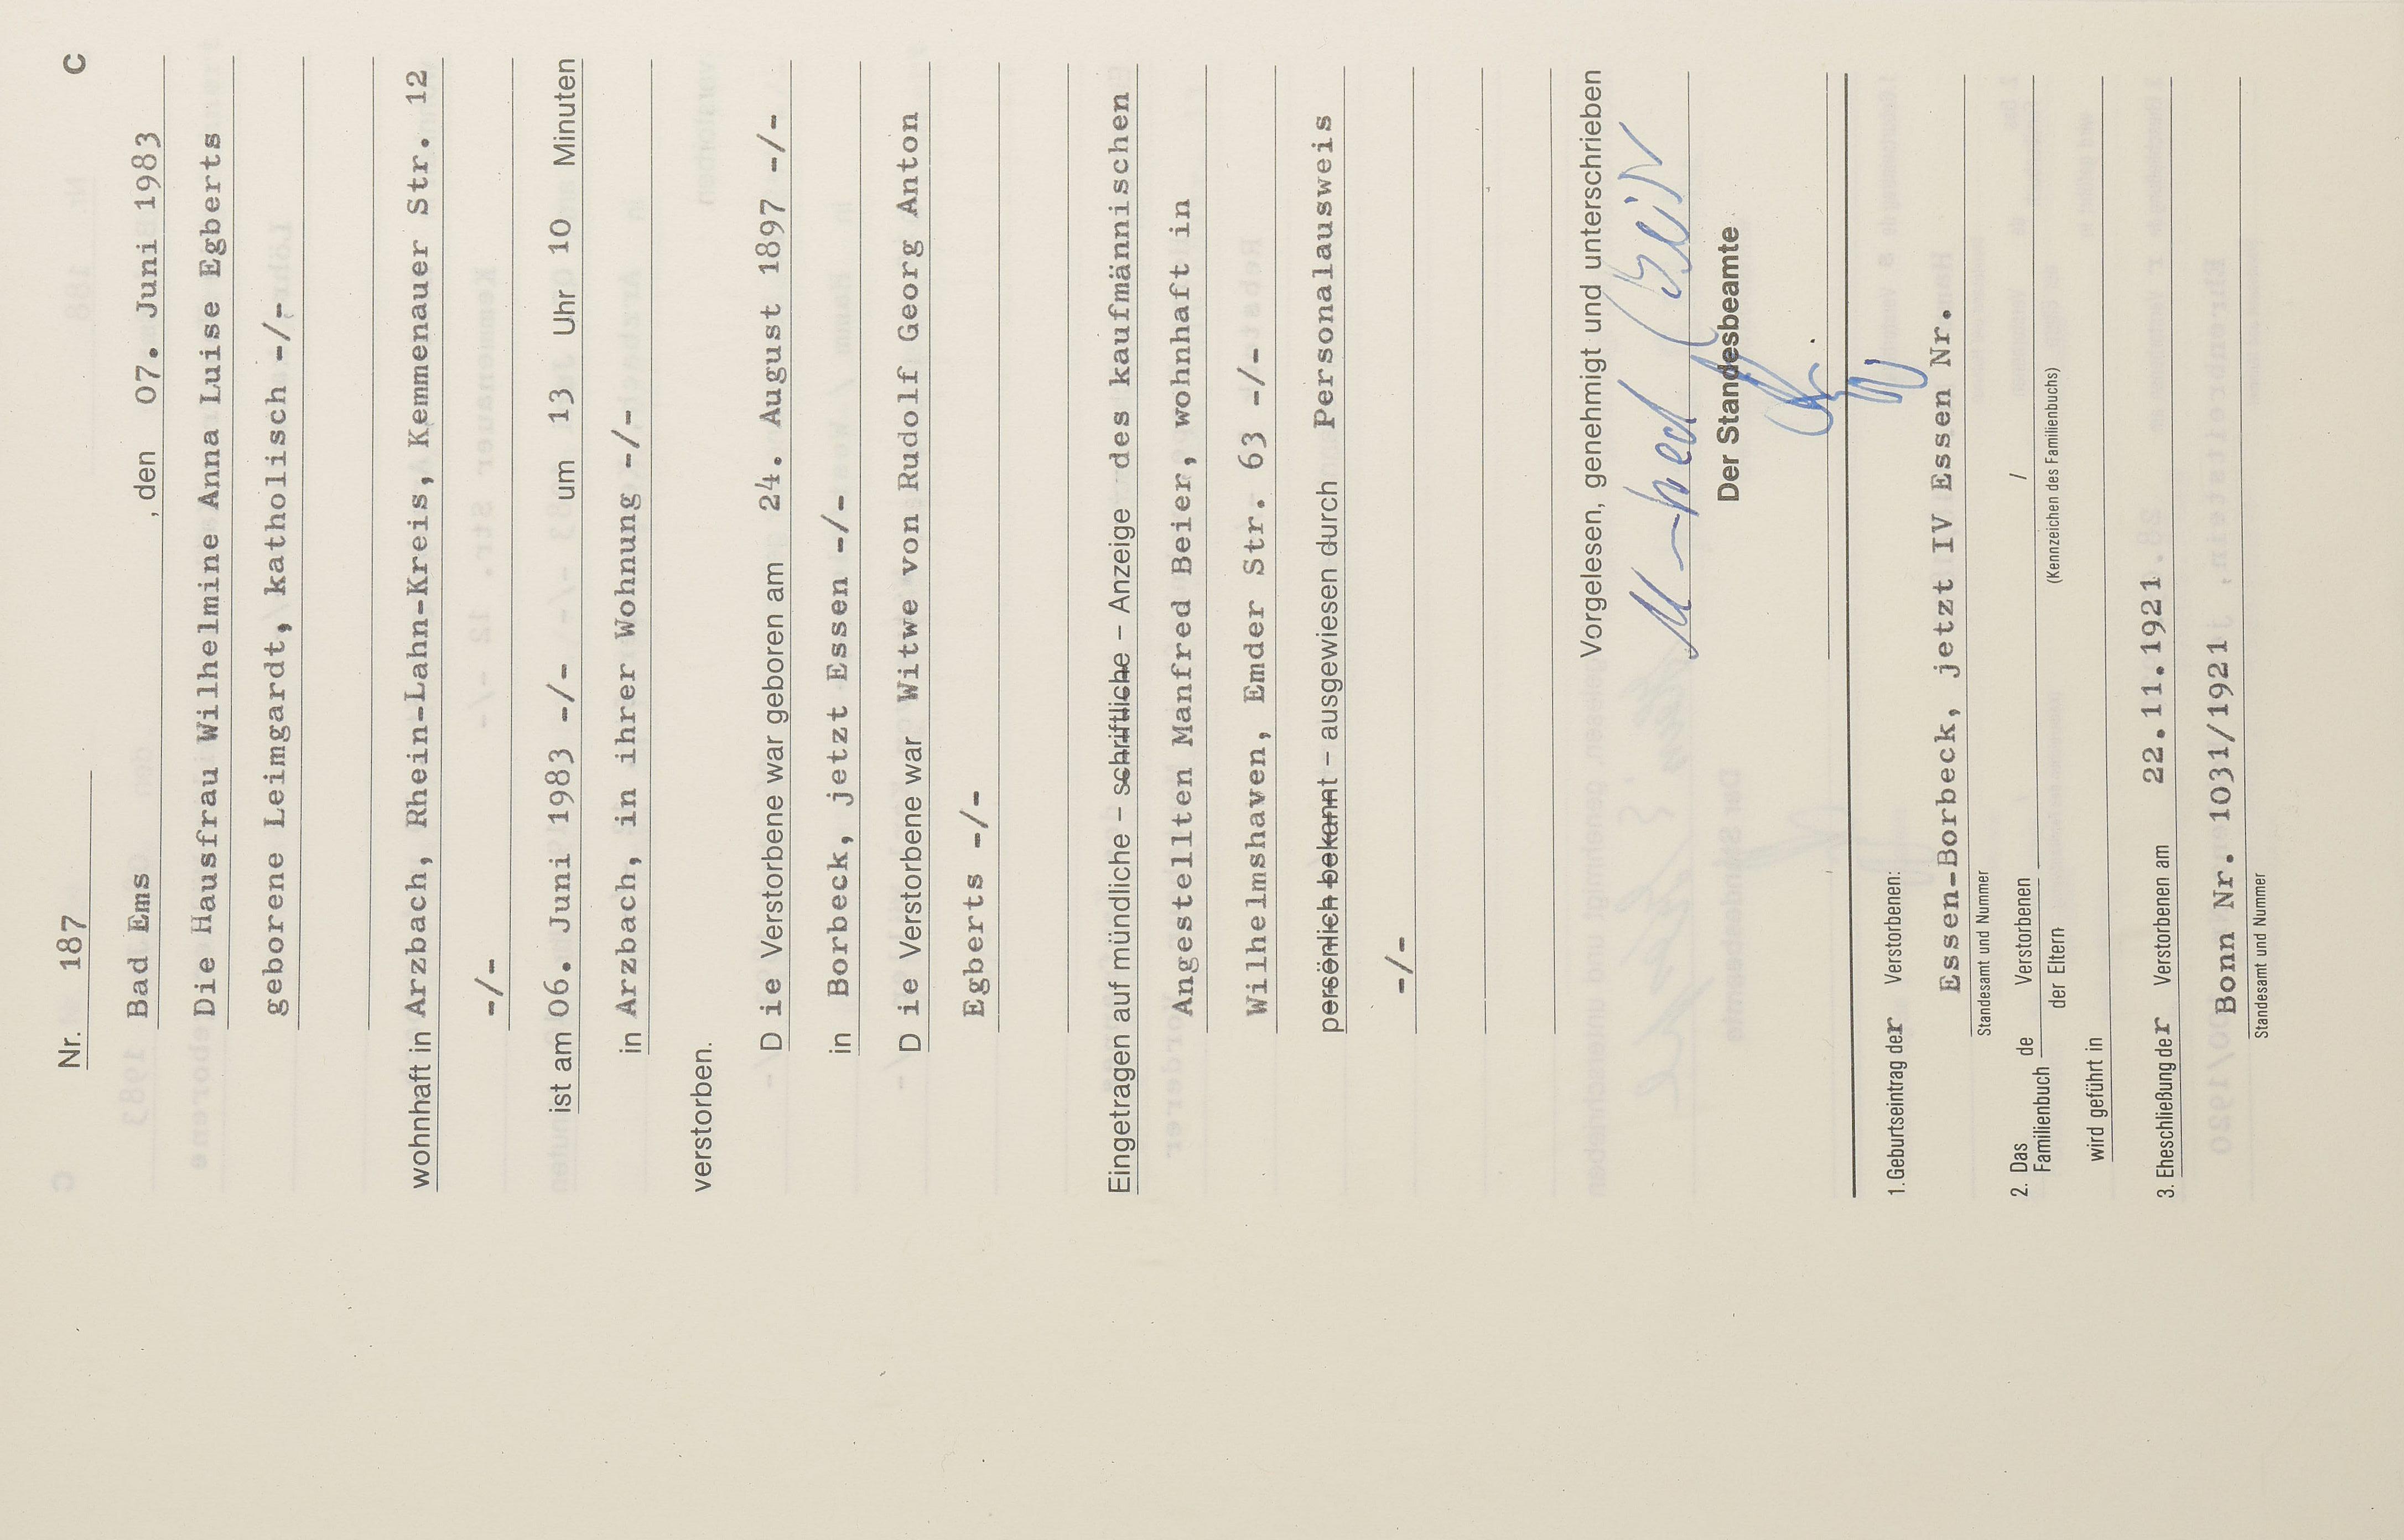 Nr. 187 C
Bad Ems , den 07. Juni 1983
Die Hausfrau Wilhelmine Anna Luise Egberts
geborene Leimgardt, katholisch -/-
wohnhaft in Arzbach, Rhein-Lahn-Kreis, Kemmenauer Str. 12
-/-
ist am 06. Juni 1983 -/- um 13 Uhr 10 Minuten
in Arzbach, in ihrer Wohnung -/-
verstorben.
D ie Verstorbene war geboren am 24. August 1897 -/-
in Borbeck, jetzt Essen -/-
D ie Verstorbene war Witwe von Rudolf Georg Anton
Egberts -/-
Eingetragen auf mündliche – schriftliche – Anzeige des kaufmännischen
Angestellten Manfred Beier, wohnhaft in
Wilhelmshaven, Emder Str. 63 -/-
persönlich bekannt – ausgewiesen durch Personalausweis
-/-
Vorgelesen, genehmigt und unterschrieben
Der Standesbeamte
1. Geburtseintrag der Verstorbenen:
Essen-Borbeck, jetzt IV Essen Nr.
Standesamt und Nummer
2. Das Familienbuch de Verstorbenen /
der Eltern (Kennzeichen des Familienbuchs)
wird geführt in
3. Eheschließung der Verstorbenen am 22.11.1921
Bonn Nr. 1031/1921
Standesamt und Nummer